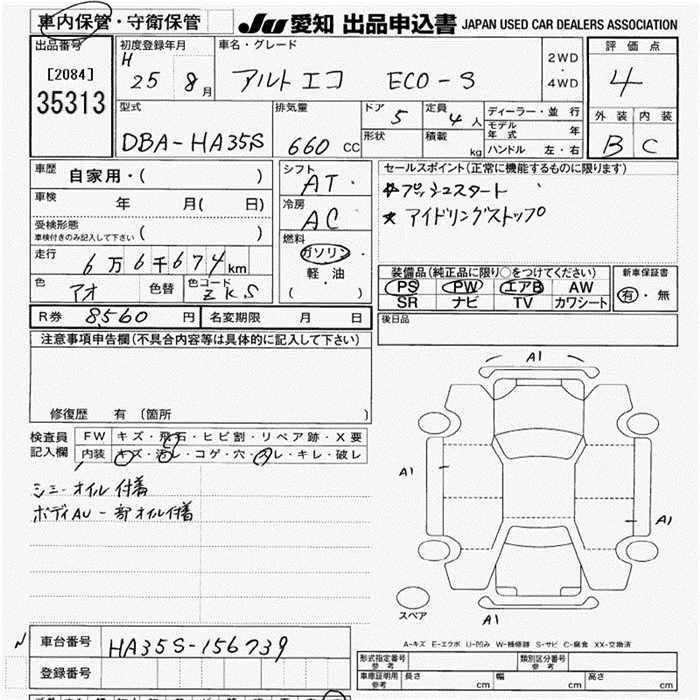 車内保管・守衛保管
JU 愛知 出品申込書 JAPAN USED CAR DEALERS ASSOCIATION
出品番号
[2084]
35313
初度登録年月
H 25 8月
車名・グレード
アルトエコ ECO-S
2WD
・
4WD
評価点
4
外装 内装
B C
型式
DBA-HA35S
排気量
660 CC
ドア 5
形状
定員 4人
積載 kg
ディーラー・並行
モデル年式 年
ハンドル 左・右
車歴
自家用・( )
車検 年 月( 日)
受検形態
車検付きのみ記入して下さい ( )
走行
6万6千674km
色 アオ 色替 色コード ZKS
シフト
AT
冷房
AC
燃料
ガソリン
軽・油
( )
セールスポイント(正常に機能するものに限ります)
プッシュスタート
★ アイドリングストップ
装備品(純正品に限り○をつけてください)
PS PW エアB AW
SR ナビ TV カワシート
新車保証書
有・無
R券 8,560円 名変期限 月 日
後日品
注意事項申告欄(不具合内容等は具体的に記入して下さい)
修復歴 有 〔箇所 〕
検査員記入欄
FW キズ・飛石・ヒビ割・リペア跡・X要
内装 キズ・汚レ・コゲ・穴・スレ・キレ・破レ
シミ・オイル付着
ボディAU一部オイル付着
A1
A1
A1
A1
スペア
A-キズ E-エクボ U-凹み W-補修跡 S-サビ C-腐食 XX-交換済
車台番号 HA35S-156739
登録番号
形式指定番号
参考
類別区分番号
参考
車庫証明用
参考
長さ cm 幅 cm 高さ cm